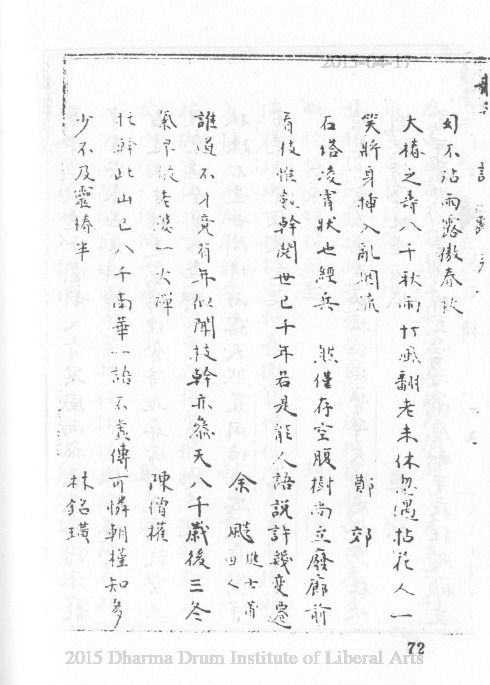 2015-04-17
不沾雨露傲春秋
大椿之壽八千秋雨打風翻老未休忽遇拈花人一
笑將身揷入亂烟流　鄭郊
石塔凌霄狀也經兵　然僅存空腹樹尚立廢廊前
看枝惟幹閱世已千年若是能人語說許幾變遷
余颺　進士莆田人
誰道不才竟有年似聞枝幹亦參天八千歲後三冬
氣早被老婆一火禪　陳僧權
托幹此山已八千南華一語不虛傳可憐朝槿知多
少不及靈椿半　林銘璜
72
2015 Dharma Drum Institute of Liberal Arts